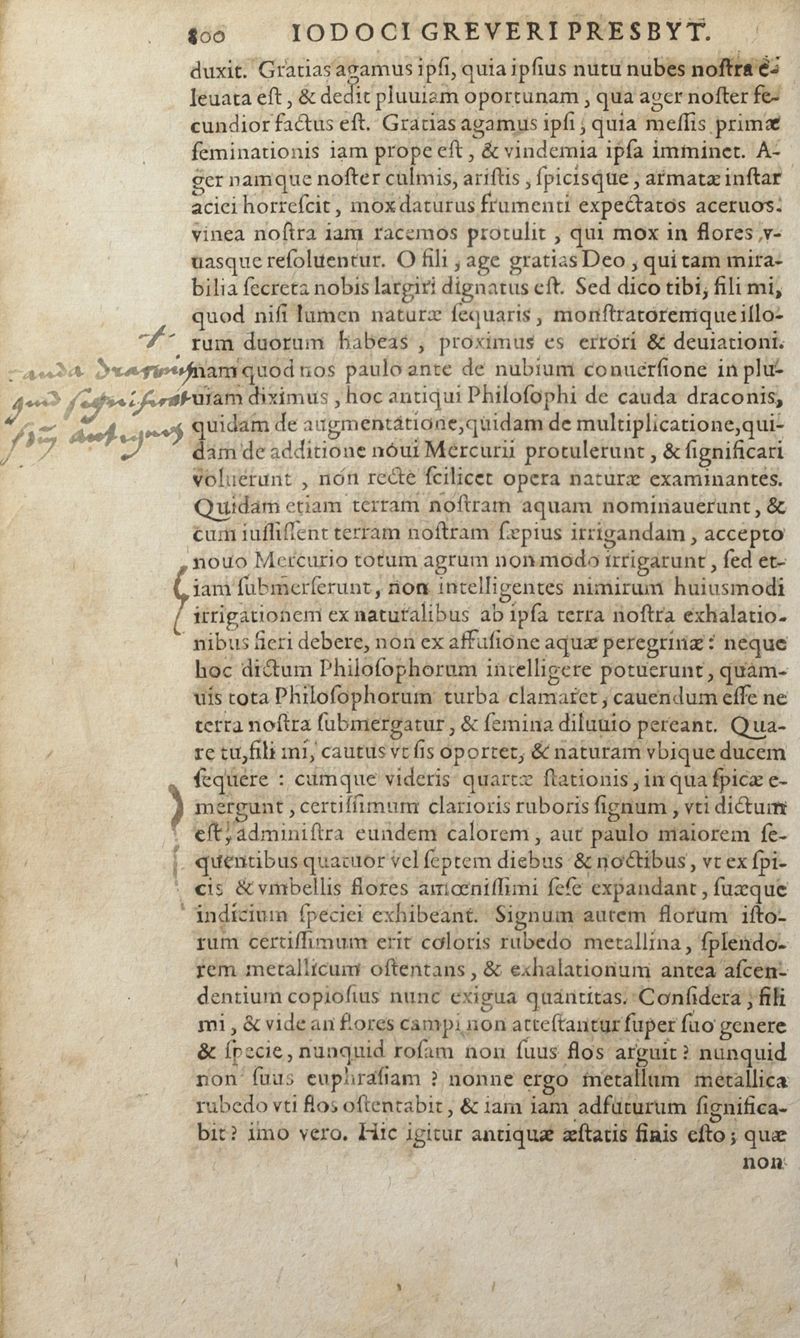 800 IODOCI GREVERI PRESBYT.
duxit. Gratias agamus ipſi, quia ipſius nutu nubes noſtra e-
leuata eſt, & dedit pluuiam oportunam, qua ager noſter fe-
cundior factus eſt. Gratias agamus ipſi, quia meſſis primæ
ſeminationis iam prope eſt, & vindemia ipſa imminet. A-
ger namque noſter culmis, ariſtis, ſpicisque, armatæ inſtar
aciei horreſcit, mox daturus frumenti expectatos aceruos.
vinea noſtra iam racemos protulit, qui mox in flores, v-
uasque reſoluentur. O fili, age gratias Deo, qui tam mira-
bilia ſecreta nobis largiri dignatus eſt. Sed dico tibi, fili mi,
quod niſi lumen naturæ ſequaris, monſtratoremque illo-
rum duorum habeas, proximus es errori & deuiationi.
nam quod nos paulo ante de nubium conuerſione in plu-
uiam diximus, hoc antiqui Philoſophi de cauda draconis,
quidam de augmentatione, quidam de multiplicatione, qui-
dam de additione nóui Mercurii protulerunt, & ſignificari
voluerunt, non rectè ſcilicet opera naturæ examinantes.
Quidam etiam terram noſtram aquam nominauerunt, &
cum iuſſiſſent terram noſtram ſæpius irrigandam, accepto
nouo Mercurio totum agrum non modo irrigarunt, ſed et-
iam ſubmerſerunt, non intelligentes nimirum huiusmodi
irrigationem ex naturalibus ab ipſa terra noſtra exhalatio-
nibus fieri debere, non ex affuſione aquæ peregrinæ: neque
hoc dictum Philoſophorum intelligere potuerunt, quam-
uis tota Philoſophorum turba clamaret, cauendum eſſe ne
terra noſtra ſubmergatur, & ſemina diluuio pereant. Qua-
re tu, fili mi, cautus vt ſis oportet, & naturam vbique ducem
ſequere : cumque videris quartæ ſtationis, in qua ſpicæ e-
mergunt, certiſſimum clarioris ruboris ſignum, vti dictum
eſt, adminiſtra eundem calorem, aut paulo maiorem ſe-
quentibus quatuor vel ſeptem diebus & noctibus, vt ex ſpi-
cis & vmbellis flores amœniſſimi ſeſe expandant, ſuæque
indicium ſpeciei exhibeant. Signum autem florum iſto-
rum certiſſimum erit coloris rubedo metallina, ſplendo-
rem metallicum oſtentans, & exhalationum antea aſcen-
dentium copioſius nunc exigua quantitas. Conſidera, fili
mi, & vide an flores campi non atteſtantur ſuper ſuo genere
& ſpecie, nunquid roſam non ſuus flos arguit? nunquid
non ſuus euphraſiam ? nonne ergo metallum metallica
rubedo vti flos oſtentabit, & iam iam adfuturum ſignifica-
bit? imo vero. Hic igitur antiquæ æſtatis finis eſto; quæ
non
cauda draconis
quid